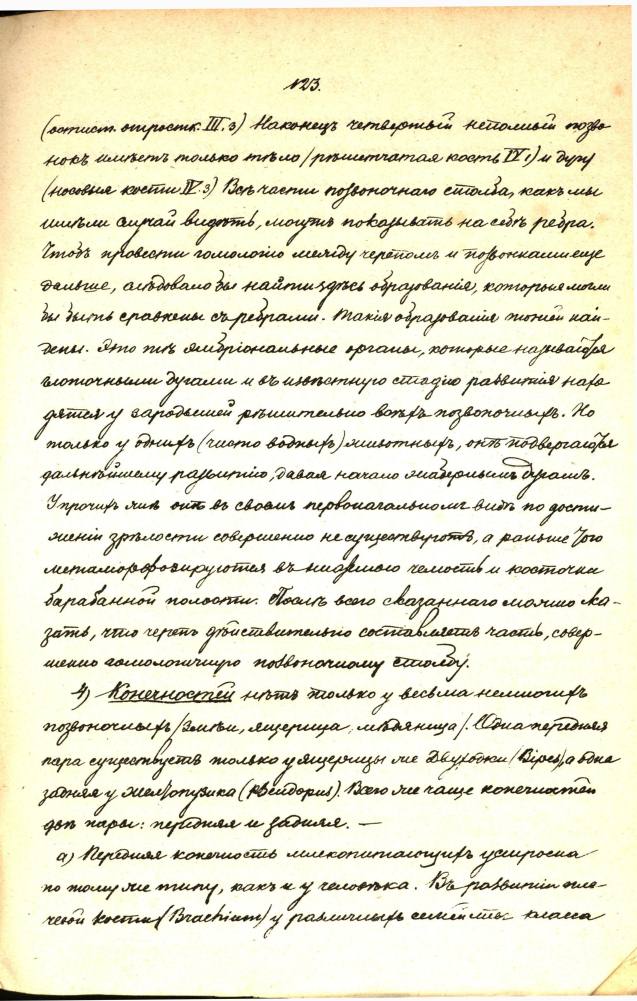 123.
(остист. отростк. III.3) Наконецъ четвертый неполный позво
нокъ имѣетъ только тѣло (рѣшетчатая кость IV 1) и дугу
(носовыя кости IV.3) Всѣ части позвоночнаго столба, какъ мы
имѣли случай видѣть, могутъ показывать на себѣ ребра.
Чтобъ провести гомологію между черепомъ и позвонками еще
дальше, слѣдовало бы найти здѣсь образованія, которыя могли
бы быть сравнены съ ребрами. Такія образованія тоже най-
дены. Это тѣ эмбріональные органы, которые называются
глоточными дугами и въ извѣстную стадію развитія нахо
дятся у зародышей рѣшительно всѣхъ позвоночныхъ. Но
только у однихъ (чисто водныхъ) животныхъ, онѣ подвергаются
дальнѣйшему развитію, давая начало жабернымъ дугамъ.
У прочихъ же онѣ въ своемъ первоначальномъ видѣ по дости-
женіи зрѣлости совершенно не существуютъ, а раньше того
метаморфозируются въ нижнюю челюсть и косточки
барабанной полости. Послѣ всего сказаннаго можно ска-
зать, что черепъ дѣйствительно составляетъ часть, совер-
шенно гомологичную позвоночному столбу.
4) Конечностей нѣтъ только у весьма немногихъ
позвоночныхъ (змѣи, ящерица, мѣдяница). Одна передняя
пара существуетъ только у ящерицы же Двуходки (Bipes), а одна
задняя у желтопузика (Псейдопус). Всего же чаще конечностей
двѣ пары: передняя и задняя. —
а) Передняя конечность млекопитающихъ устроена
по тому же типу, какъ и у человѣка. Въ развитіи пле-
чевой кости (Brachium) у различныхъ семействъ класса